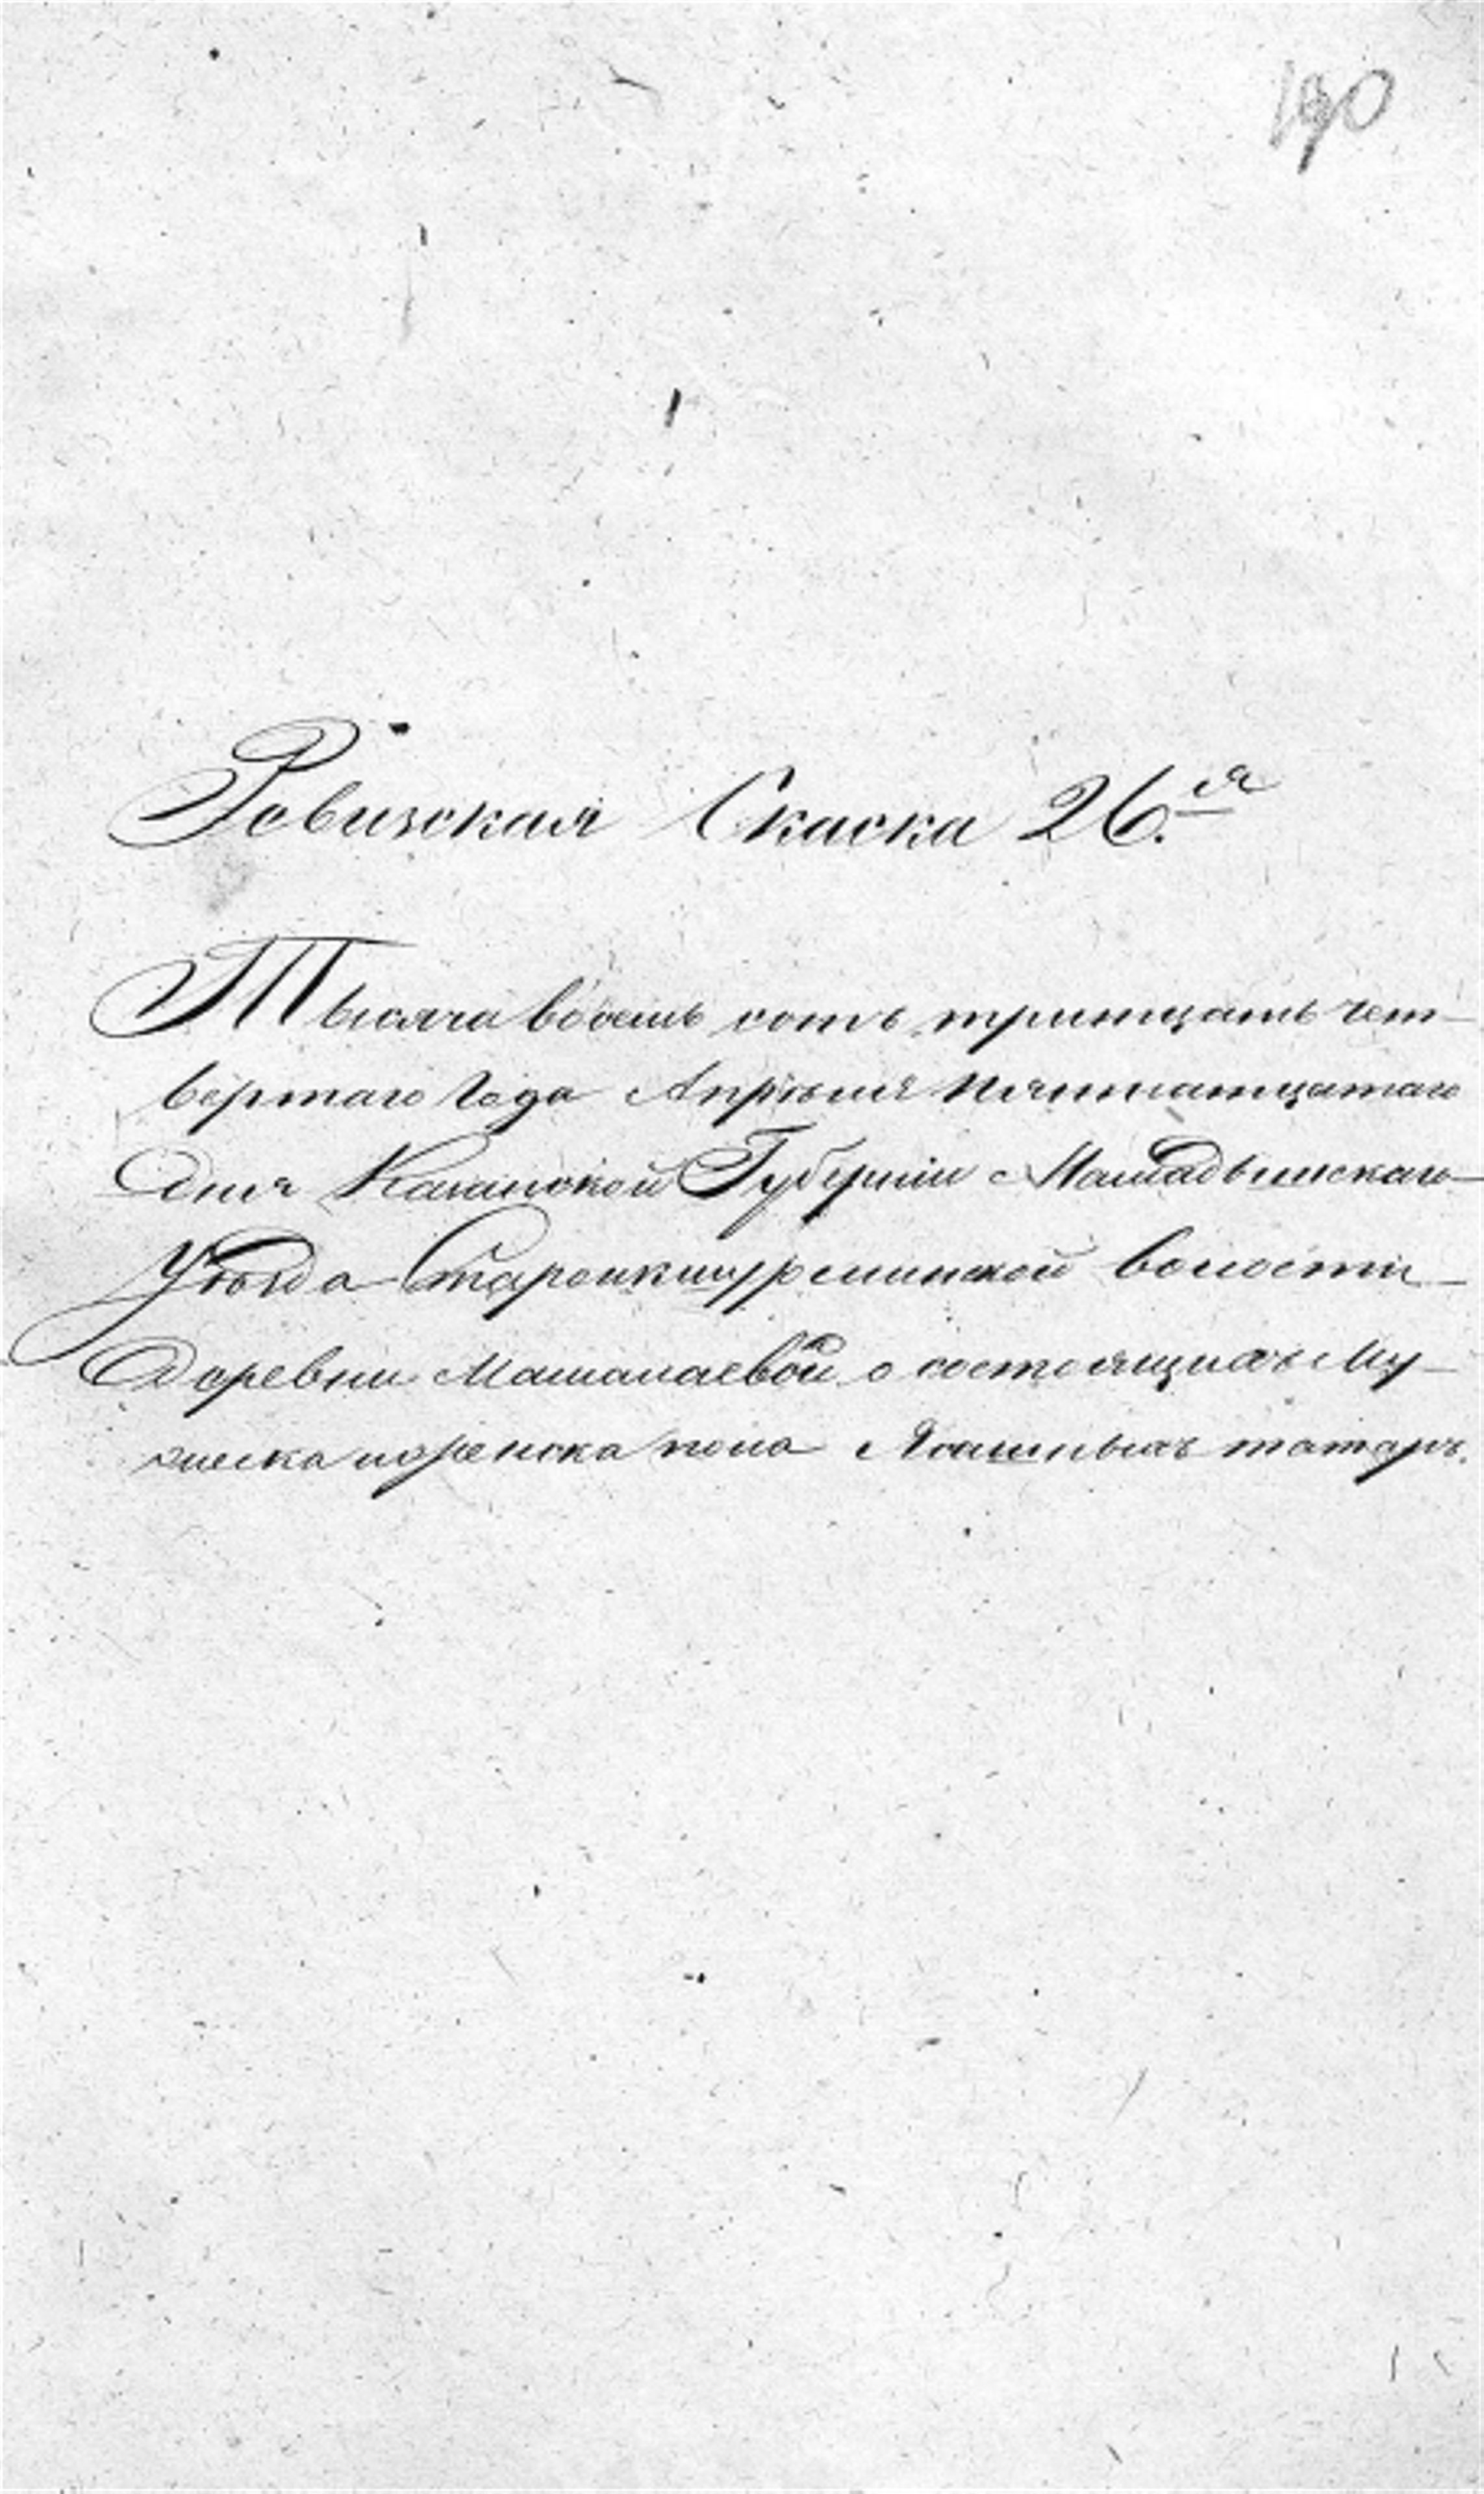 190
Ревизская Скаска 26.ая
Тысяча восемь сотъ тритцать чет-
вертаго Года Апрѣля пятнатцатаго
Дня Казанской Губерніи Мамадышскаго
Уѣзда Староикшурминской волости
Деревни Машанаевой о состоящихъ Му-
жеска и женска пола Ясашныхъ татаръ.